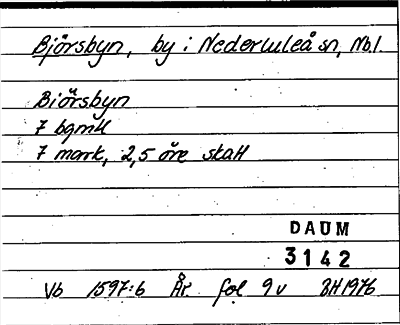 Björsbyn, by i Nederluleå sn, Nb.l.
Biörsbyn
7 bgmtl
7 mark, 2,5 öre skatt
DAUM
3142
Vb 1597:6 År. fol 9v BH 1976